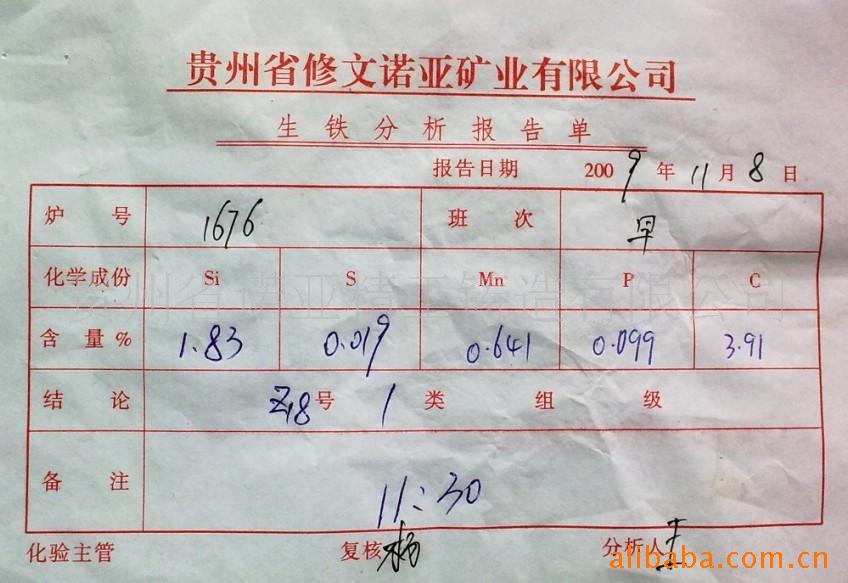 贵州省修文诺亚矿业有限公司
生铁分析报告单
报告日期 2009年11月8日
炉号 1676 班次 早
化学成份 Si S Mn P C
贵州省诺亚精工铸造有限公司
含量% 1.83 0.019 0.641 0.099 3.91
结论 Z18号 1类 组 级
备注 11:30
化验主管 复核 杨 分析人 王
alibaba.com.cn